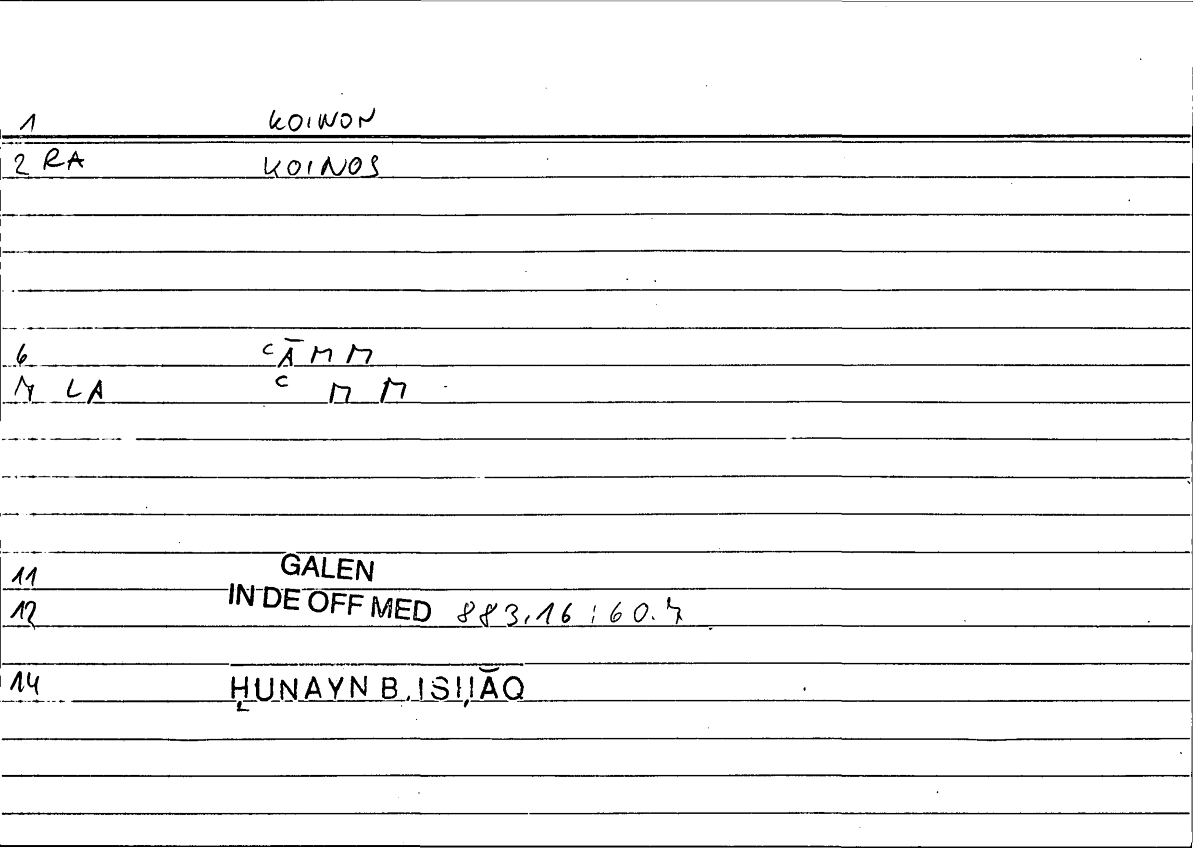 1 KOINON
2 RA KOINOS
6 ʿĀMM
7 LA ʿ M M
11 GALEN
12 IN DE OFF MED 883,16 ; 60.7
14 ḤUNAYN B. ISḤĀQ